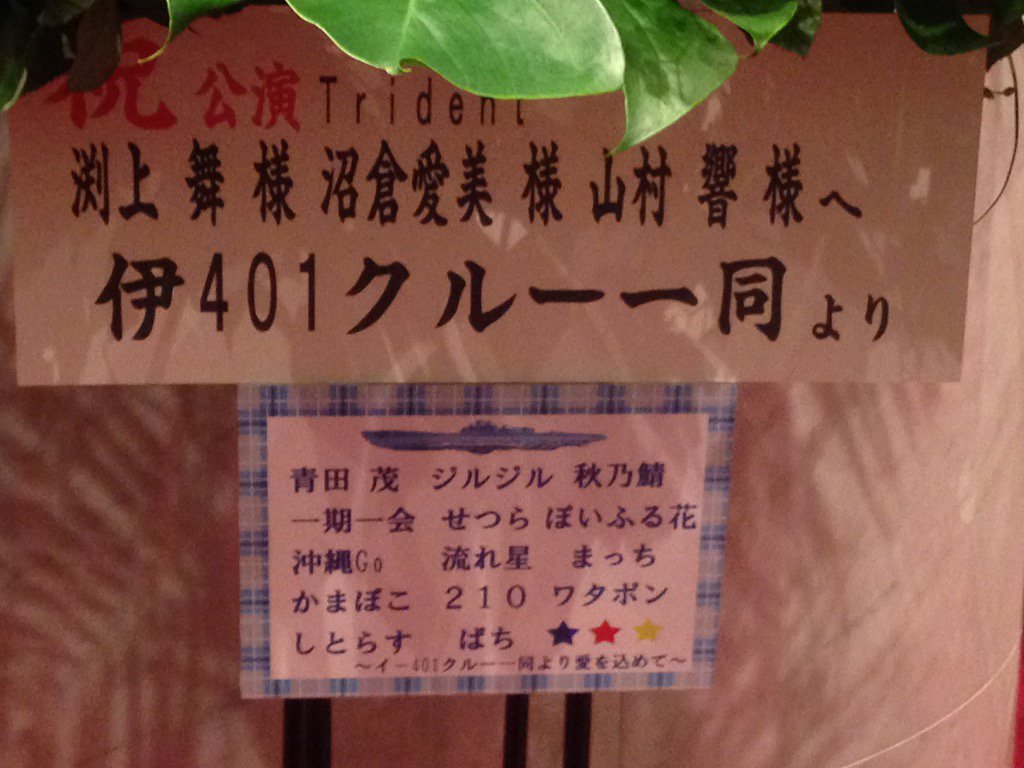 祝 公演 Trident
渕上 舞 様 沼倉愛美 様 山村 響 様 へ
伊401クルー一同 より
青田 茂 ジルジル 秋乃鯖
一期一会 せつら ぽいふる花
沖縄Go 流れ星 まっち
かまぼこ 210 ワタポン
しとらす ぱち ★★★
～イ－401クルー一同より愛を込めて～